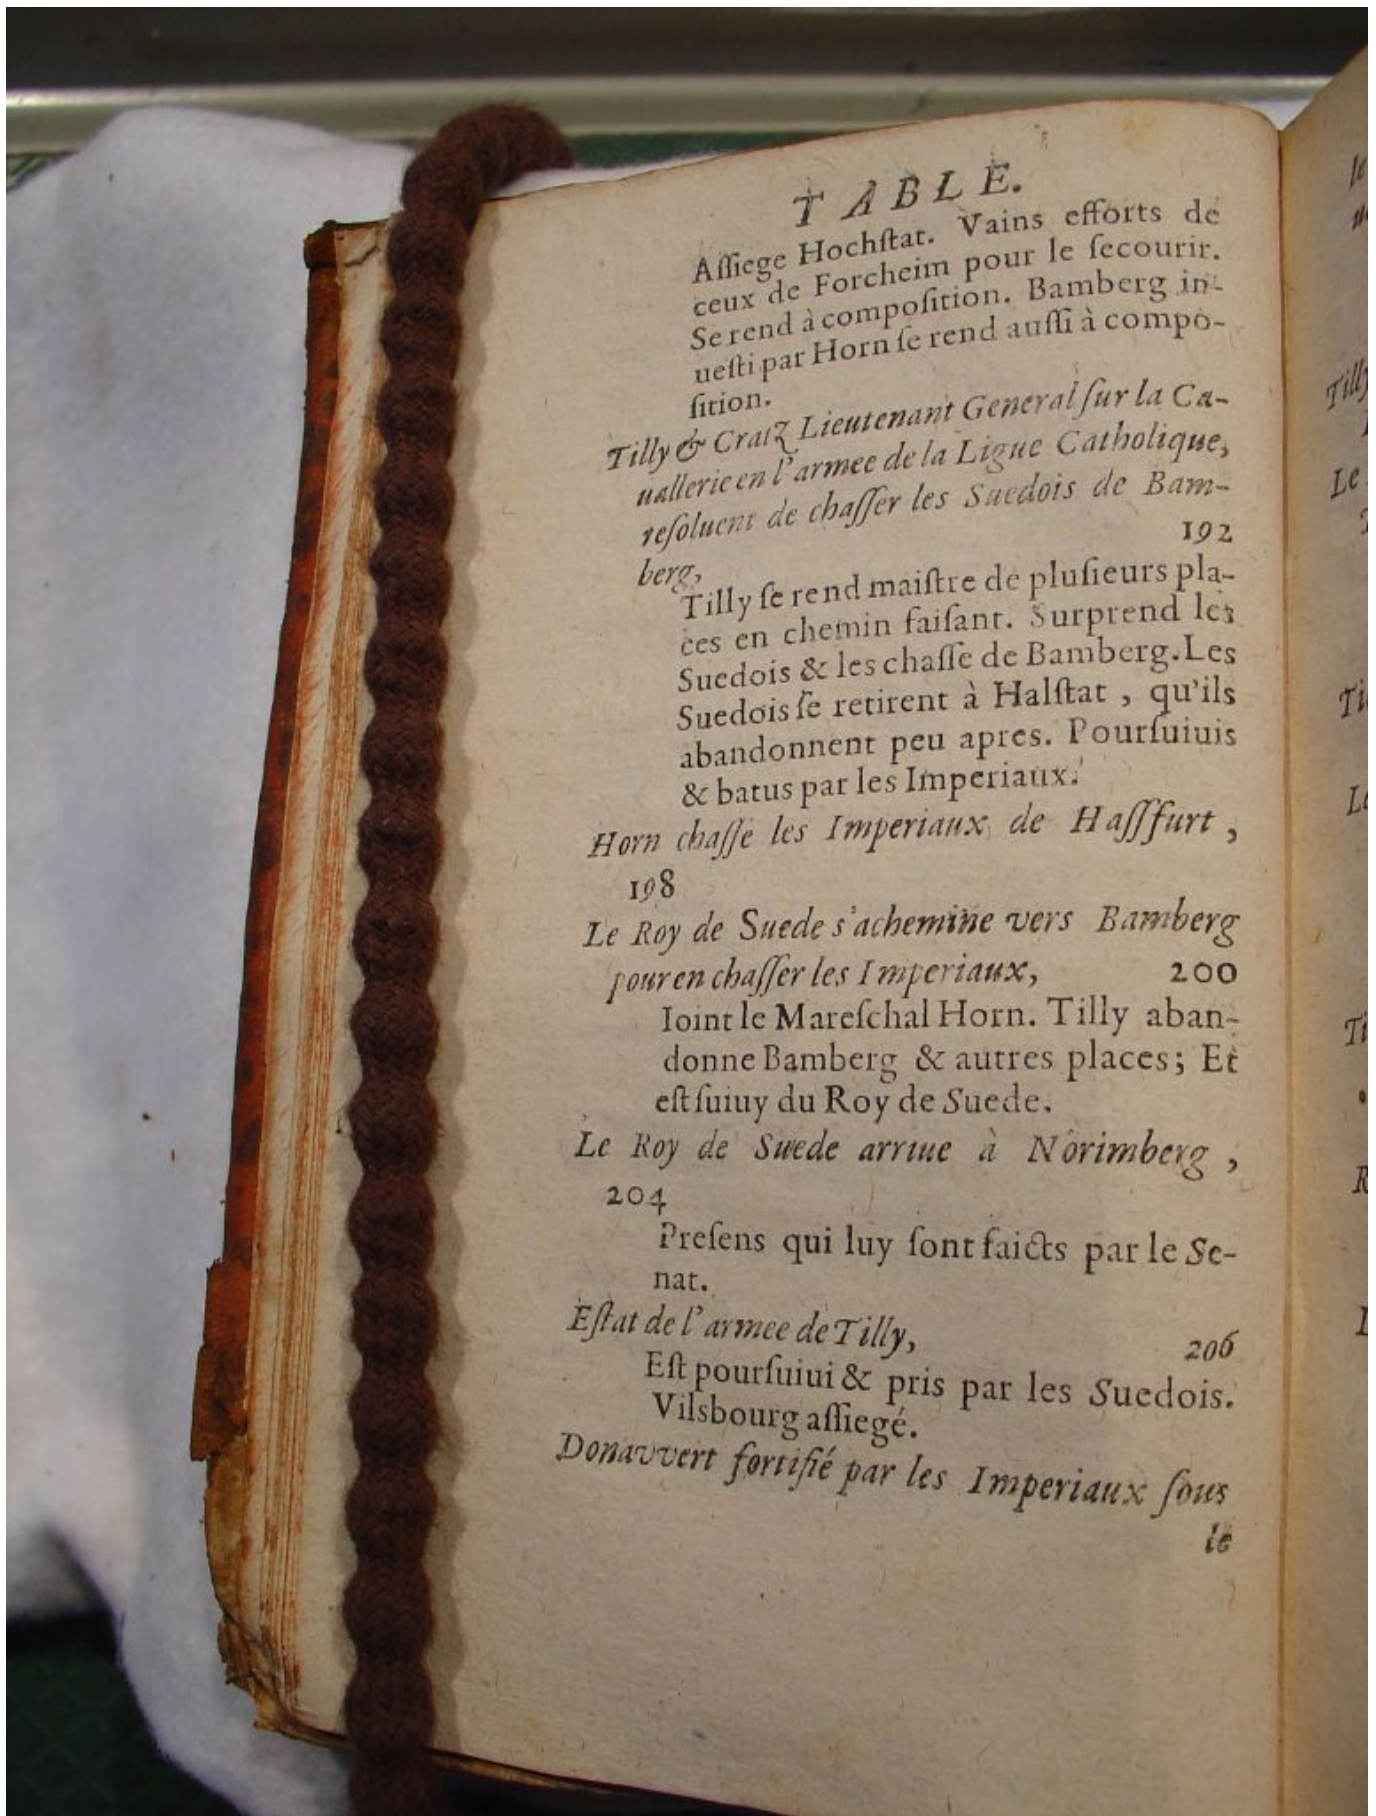 TABLE.
Aſſiege Hochſtat. Vains efforts de
ceux de Forcheim pour le ſecourir.
Se rend à compoſition. Bamberg in-
ueſti par Horn ſe rend auſſi à compo-
ſition.
Tilly & Cratz Lieutenant General ſur la Ca-
uallerie en l'armee de la Ligue Catholique,
reſoluent de chaſſer les Suedois de Bam-
berg, 192
Tilly ſe rend maiſtre de pluſieurs pla-
ces en chemin faiſant. Surprend les
Suedois & les chaſſe de Bamberg. Les
Suedois ſe retirent à Halſtat, qu'ils
abandonnent peu apres. Pourſuiuis
& batus par les Imperiaux.
Horn chaſſe les Imperiaux de Haſſfurt,
198
Le Roy de Suede s'achemine vers Bamberg
pour en chaſſer les Imperiaux, 200
Ioint le Mareſchal Horn. Tilly aban-
donne Bamberg & autres places; Et
eſt ſuiuy du Roy de Suede.
Le Roy de Suede arriue à Norimberg,
204
Preſens qui luy ſont faicts par le Se-
nat.
Eſtat de l'armee de Tilly, 206
Eſt pourſuiui & pris par les Suedois.
Vilsbourg aſſiegé.
Donavvert fortifié par les Imperiaux ſous
le
Tilly
Le